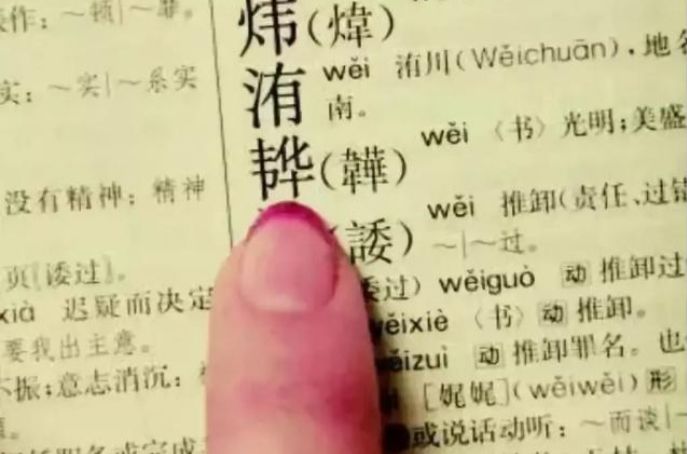 作：～顿|～靡。
实：～实|～系实
没有精神：精神
页〖诿过〗。
xià 迟疑而决定
要我出主意。
不振；意志消沉：
炜(煒)
洧 wěi 洧川(Wěichuān)，地名
南。
(韡) wěi 〈书〉光明；美盛
(諉) wěi 推卸(责任、过错
～|～过。
过) wěiguò 动 推卸过
wěixiè 〈书〉动 推卸。
wěizuì 动 推卸罪名。也
[娓娓](wěiwěi) 形
或说话动听：～而谈|～